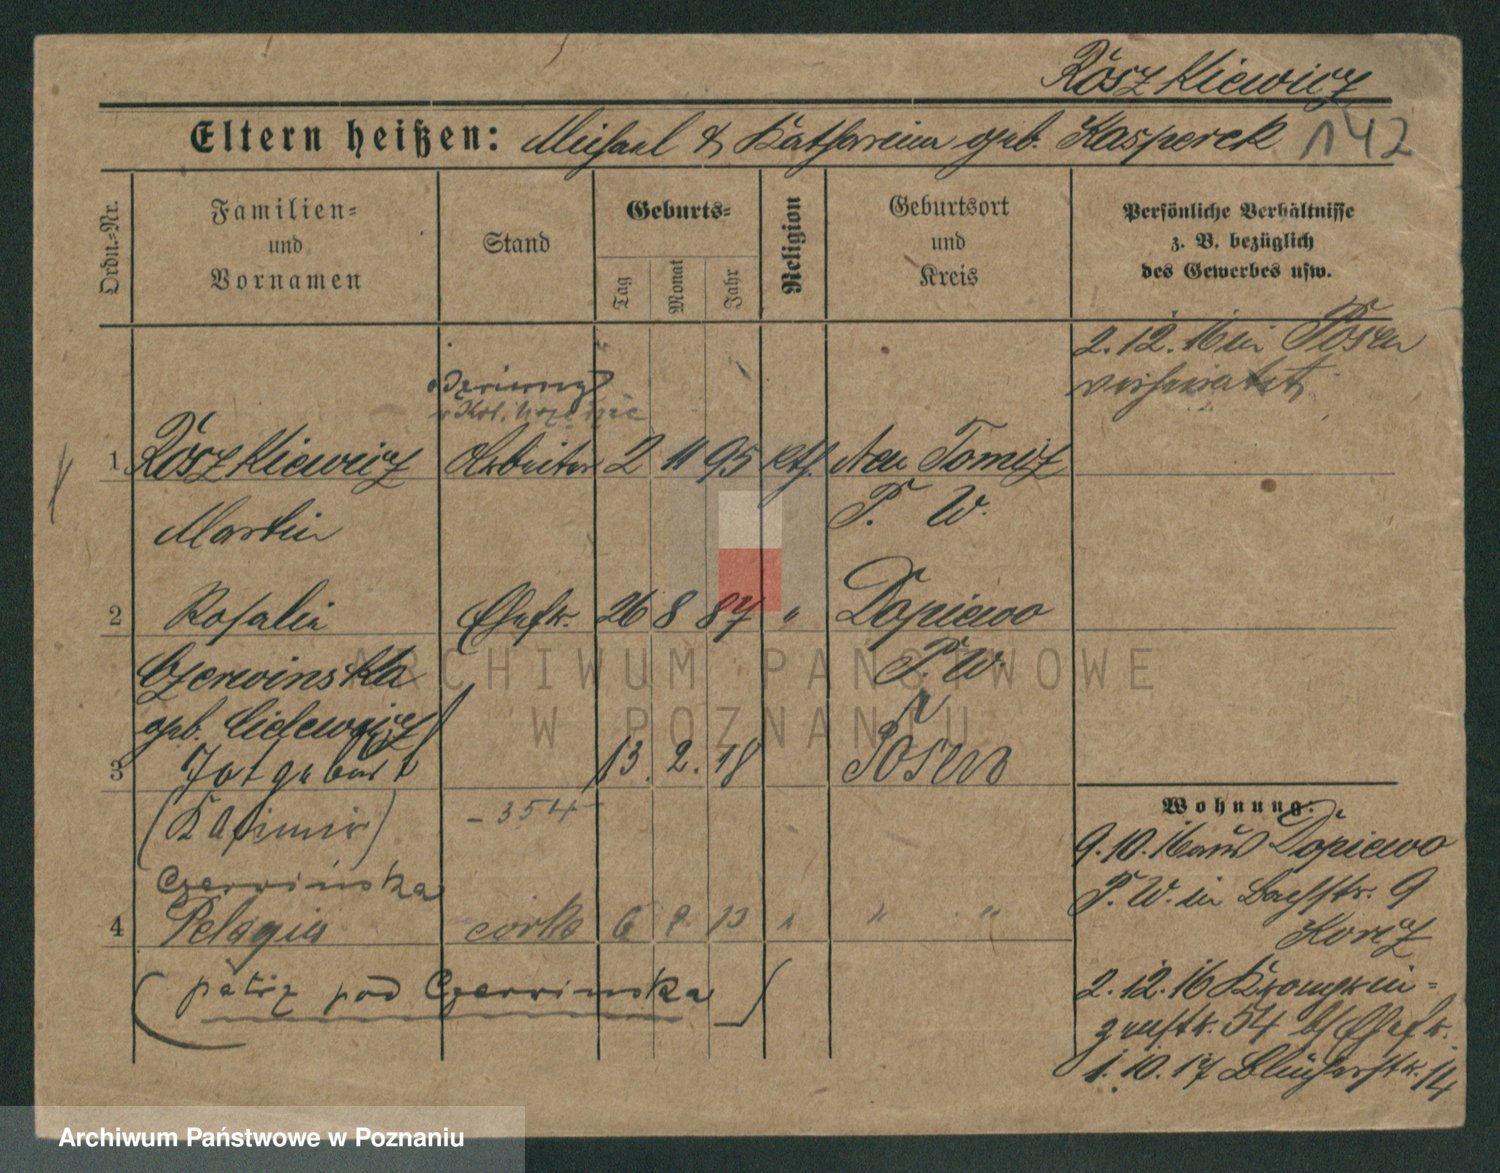 Roszkiewicz
Eltern heißen: Michael & Katharina geb. Kasperek 142
Ordn.-Nr.
Familien-
und
Vornamen
Stand
Geburts-
Tag
Monat
Jahr
Religion
Geburtsort
und
Kreis
Persönliche Verhältnisse
z. B. bezüglich
des Gewerbes usw.
2.12.16 in Posen
verheiratet
1 Roszkiewicz Arbeiter 2 11 95 kth. Neu Tomisl
Martin P. W.
2 Rosalia Ehefr. 26 8 87 " Dopiewo
Czerwinska P. W.
geb.
3 Totgeburt 13. 2. 18 Posen
(Kasimir) - 354
Czerwińska
4 Pelagia córka 6 9 13 " " "
(patrz pod Czerwinska)
Wohnung:
9.10.16 aus Dopiewo
P. W. in Bachstr. 9
2.12.16 Kronprin-
zenstr. 54 b/ Ehefr.
1.10.17 Blücherstr. 14
ARCHIWUM PAŃSTWOWE
W POZNANIU
Archiwum Państwowe w Poznaniu